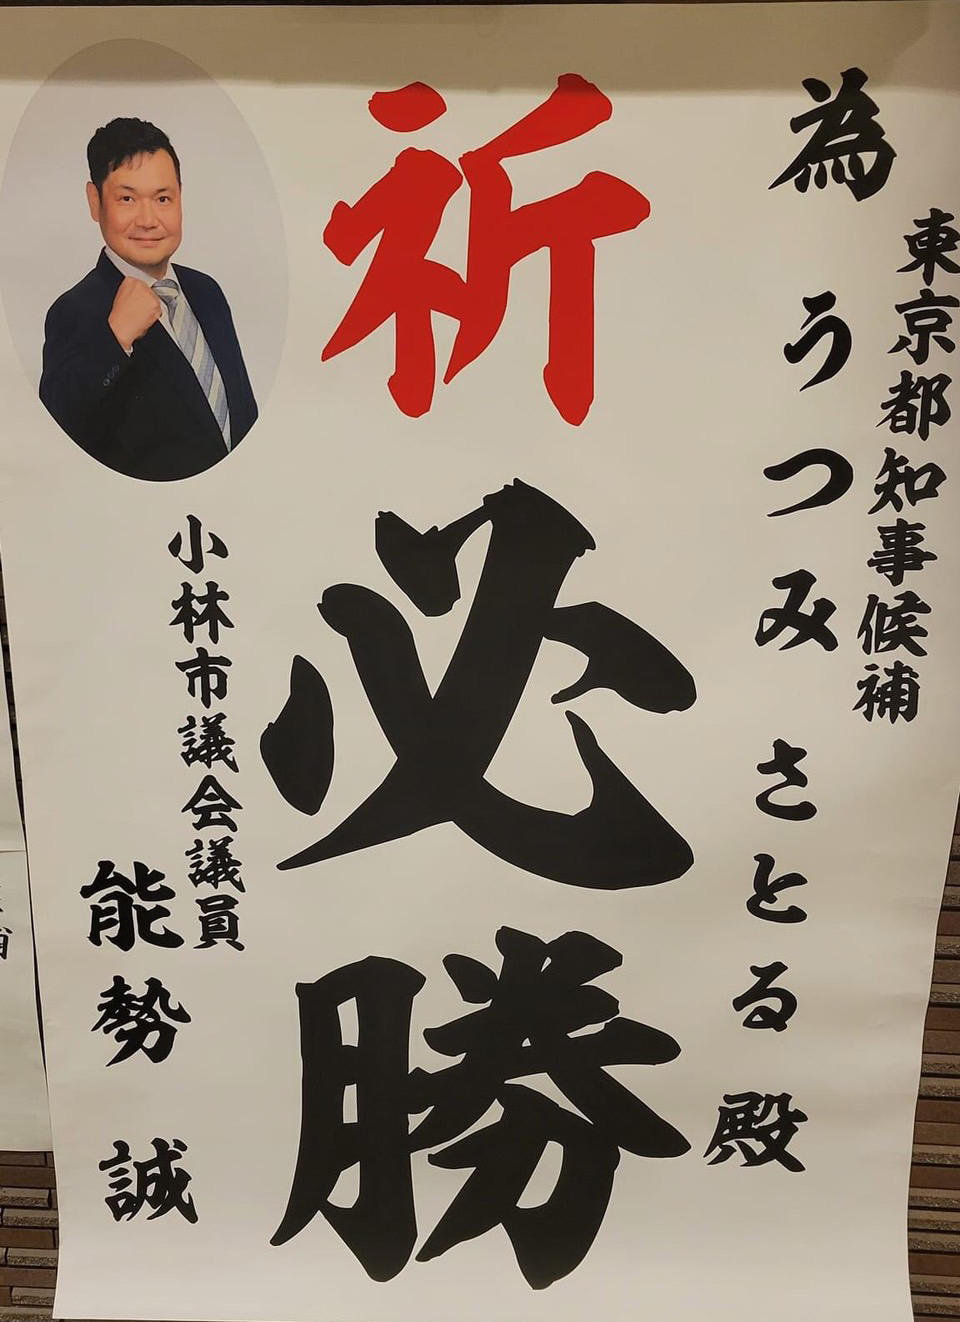 東京都知事候補
為 うつみ さとる 殿
祈必勝
小林市議会議員
能勢 誠